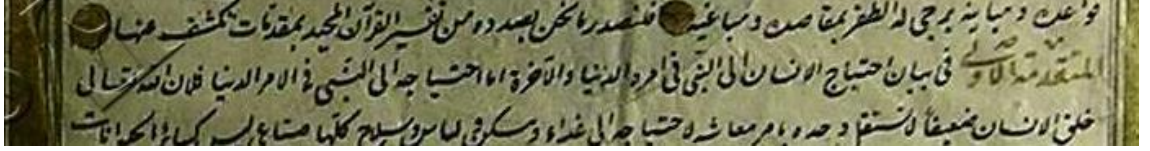 قواعده ومباينه يرجى له الظفر بمقاصده ومباغيه فلنصدر ما نحن بصدده من تفسير القرآن المجيد بمقدمات تكشف عنها
المقدمة الاولى فى بيان احتياج الانسان الى النبى فى امره الدنيا والآخرة اما احتياجه الى النبى فى الامر الدنيا فلان الله تعالى
خلق الانسان ضعيفا لا يستقل وحده بامر معاشه لاحتياجه الى غذاء ومسكن ولباس وسلاح كلها صناعى ليس كسائر الحيوانات